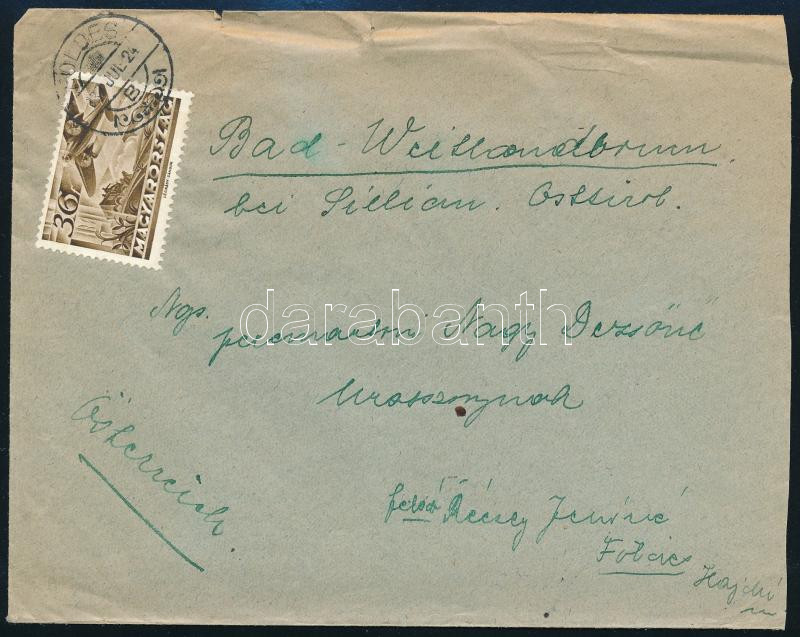 FÖLDES
JUL. 24
B
36f
MAGYARORSZÁG
Bad - Weitlanbrunn
bei Sillian. Osttirol.
darabanth
Ngs.
peremartoni Nagy Dezsőné
Urasszonynak
Österreich.
Récsey Jenőné
Földes
Hajdú